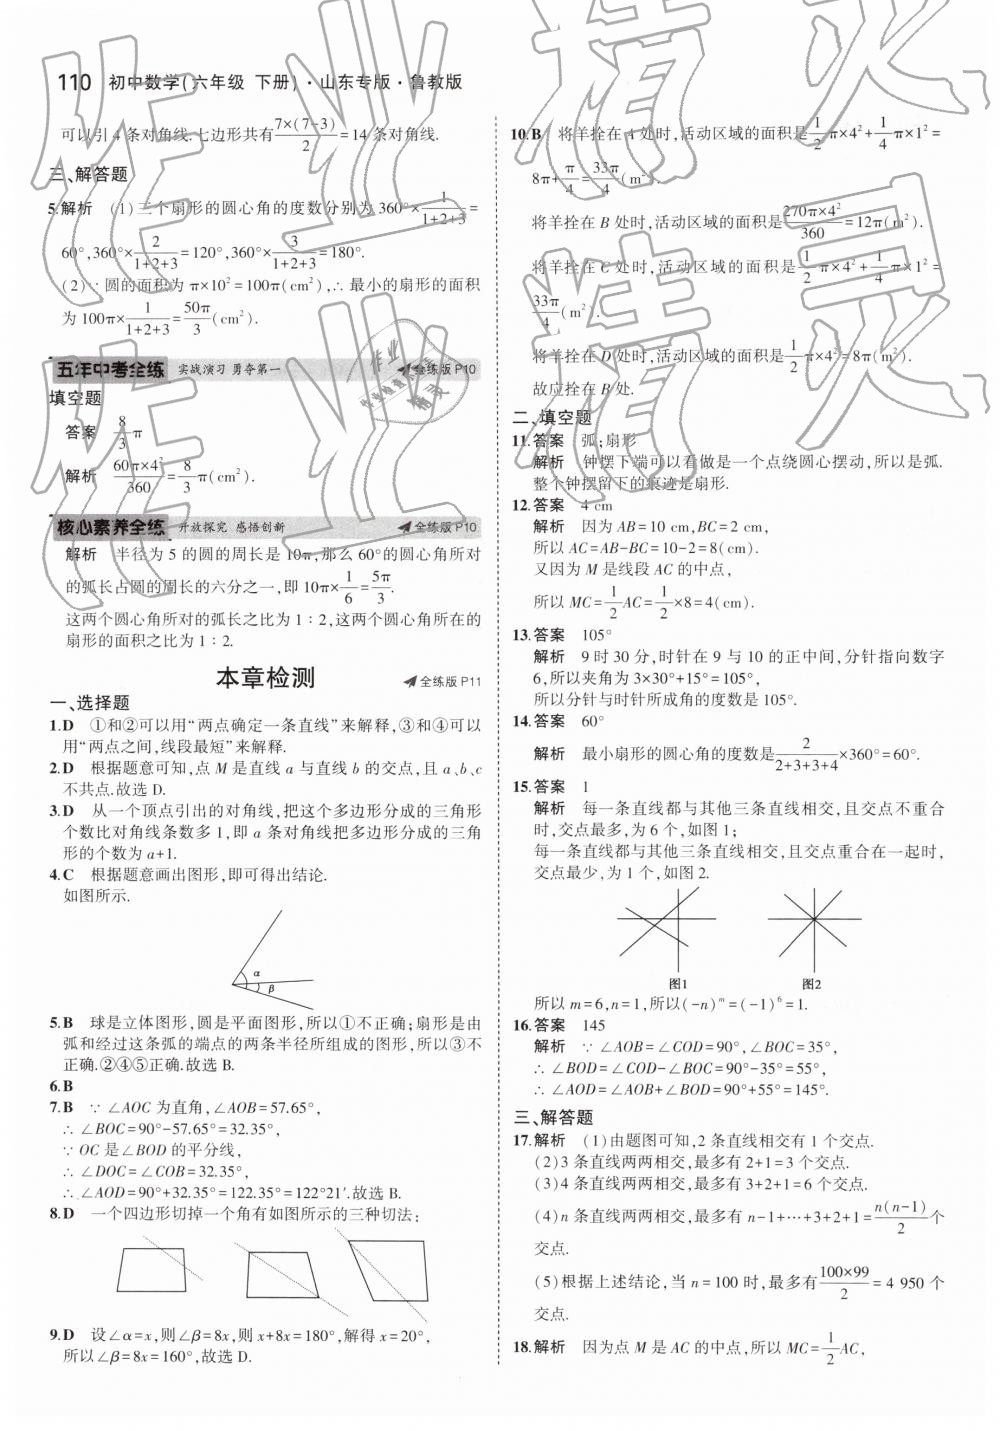 110 初中数学(六年级 下册)·山东专版·鲁教版
可以引4条对角线.七边形共有7×(7-3)/2=14条对角线.
三、解答题
5.解析 (1)三个扇形的圆心角的度数分别为360°×1/(1+2+3)=
60°,360°×2/(1+2+3)=120°,360°×3/(1+2+3)=180°.
(2)∵圆的面积为π×10²=100π(cm²),∴最小的扇形的面积
为100π×1/(1+2+3)=50π/3(cm²).
五年中考全练 实战演习 勇夺第一 全练版P10
填空题
答案 8/3π
解析 60π×4²/360=8/3π(cm²).
核心素养全练 开放探究 感悟创新 全练版P10
解析 半径为5的圆的周长是10π,那么60°的圆心角所对
的弧长占圆的周长的六分之一,即10π×1/6=5π/3.
这两个圆心角所对的弧长之比为1∶2,这两个圆心角所在的
扇形的面积之比为1∶2.
本章检测 全练版P11
一、选择题
1.D ①和②可以用“两点确定一条直线”来解释,③和④可以
用“两点之间,线段最短”来解释.
2.D 根据题意可知,点M是直线a与直线b的交点,且a、b、c
不共点.故选D.
3.D 从一个顶点引出的对角线,把这个多边形分成的三角形
个数比对角线条数多1,即a条对角线把多边形分成的三角
形的个数为a+1.
4.C 根据题意画出图形,即可得出结论.
如图所示.
α
β
5.B 球是立体图形,圆是平面图形,所以①不正确;扇形是由
弧和经过这条弧的端点的两条半径所组成的图形,所以③不
正确.②④⑤正确.故选B.
6.B
7.B ∵∠AOC为直角,∠AOB=57.65°,
∴∠BOC=90°-57.65°=32.35°,
∵OC是∠BOD的平分线,
∴∠DOC=∠COB=32.35°,
∴∠AOD=90°+32.35°=122.35°=122°21′.故选B.
8.D 一个四边形切掉一个角有如图所示的三种切法:
9.D 设∠α=x,则∠β=8x,则x+8x=180°,解得x=20°,
所以∠β=8x=160°,故选D.
10.B 将羊拴在A处时,活动区域的面积是1/2π×4²+1/4π×1²=
8π+π/4=33π/4(m²).
将羊拴在B处时,活动区域的面积是270π×4²/360=12π(m²).
将羊拴在C处时,活动区域的面积是1/2π×4²+1/4π×1²=
33π/4(m²).
将羊拴在D处时,活动区域的面积是1/2π×4²=8π(m²).
故应拴在B处.
二、填空题
11.答案 弧;扇形
解析 钟摆下端可以看做是一个点绕圆心摆动,所以是弧.
整个钟摆留下的痕迹是扇形.
12.答案 4 cm
解析 因为AB=10 cm,BC=2 cm,
所以AC=AB-BC=10-2=8(cm).
又因为M是线段AC的中点,
所以MC=1/2AC=1/2×8=4(cm).
13.答案 105°
解析 9时30分,时针在9与10的正中间,分针指向数字
6,所以夹角为3×30°+15°=105°,
所以分针与时针所成角的度数是105°.
14.答案 60°
解析 最小扇形的圆心角的度数是2/(2+3+3+4)×360°=60°.
15.答案 1
解析 每一条直线都与其他三条直线相交,且交点不重合
时,交点最多,为6个,如图1;
每一条直线都与其他三条直线相交,且交点重合在一起时,
交点最少,为1个,如图2.
图1 图2
所以m=6,n=1,所以(-n)ᵐ=(-1)⁶=1.
16.答案 145
解析 ∵∠AOB=∠COD=90°,∠BOC=35°,
∴∠BOD=∠COD-∠BOC=90°-35°=55°,
∴∠AOD=∠AOB+∠BOD=90°+55°=145°.
三、解答题
17.解析 (1)由题图可知,2条直线相交有1个交点.
(2)3条直线两两相交,最多有2+1=3个交点.
(3)4条直线两两相交,最多有3+2+1=6个交点.
(4)n条直线两两相交,最多有n-1+…+3+2+1=n(n-1)/2个
交点.
(5)根据上述结论,当n=100时,最多有100×99/2=4 950个
交点.
18.解析 因为点M是AC的中点,所以MC=1/2AC,
作业精灵
作业精灵